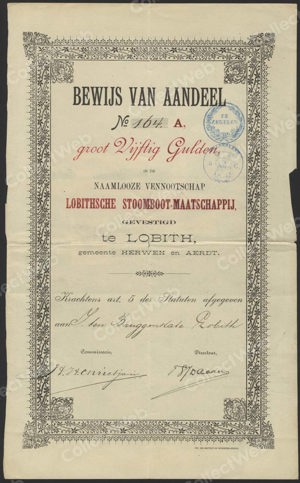 BEWIJS VAN AANDEEL
No 164 A,
groot Vijftig Gulden
IN DE
NAAMLOOZE VENNOOTSCHAP
LOBITHSCHE STOOMBOOT-MAATSCHAPPIJ,
GEVESTIGD
te LOBITH,
gemeente HERWEN en AERDT.
Krachtens art. 5 des Statuten afgegeven
aan J. ten Lobith
Commissaris,
Directeur,